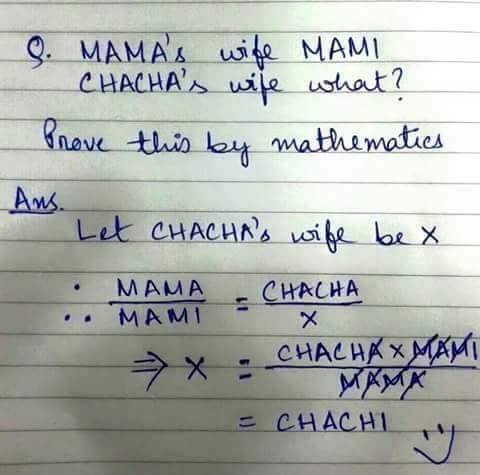 Q. MAMA's wife MAMI
CHACHA's wife what?
Prove this by mathematics
Ans.
Let CHACHA's wife be x
∴ MAMA/MAMI = CHACHA/x
⇒ x = CHACHA x MAMI/MAMA
= CHACHI